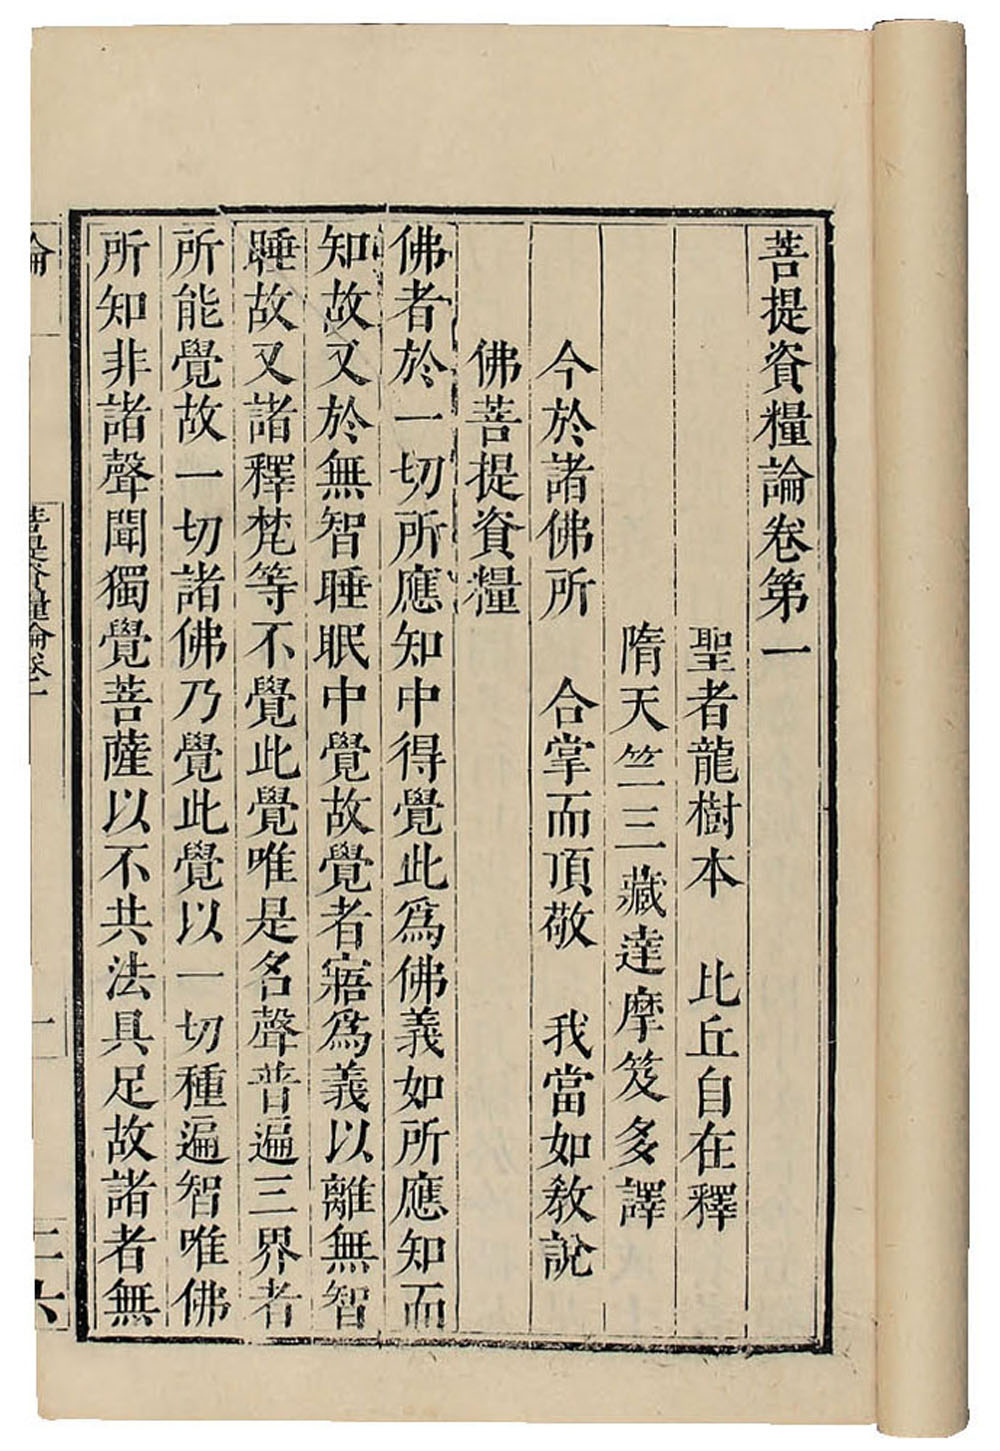 菩提資糧論卷第一
聖者龍樹本　比丘自在釋
隋天竺三藏達摩笈多譯
今於諸佛所　合掌而頂敬　我當如教說
佛菩提資糧
佛者於一切所應知中得覺此爲佛義如所應知而
知故又於無智睡眠中覺故覺者寤爲義以離無智
睡故又諸釋梵等不覺此覺唯是名聲普遍三界者
所能覺故一切諸佛乃覺此覺以一切種遍智唯佛
所知非諸聲聞獨覺菩薩以不共法具足故諸者無
論
菩提資糧論卷一
一
二六